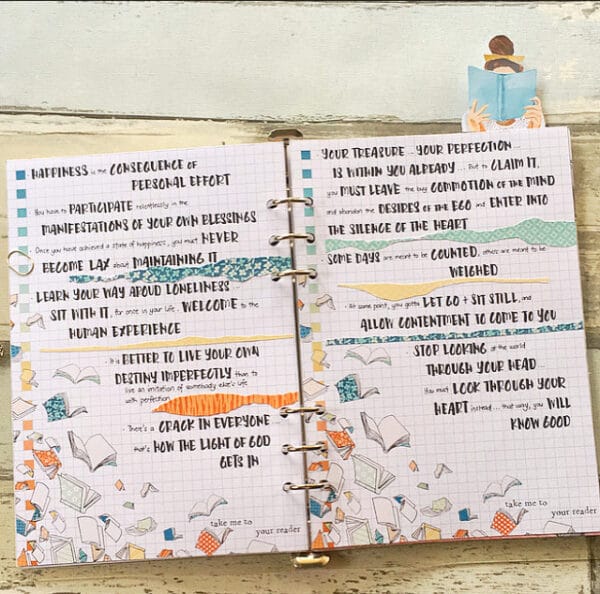 · HAPPINESS is the CONSEQUENCE OF
PERSONAL EFFORT
· You have to PARTICIPATE relentlessly in the
MANIFESTATIONS OF YOUR OWN BLESSINGS
· Once you have achieved a state of happiness, you must NEVER
BECOME LAX about MAINTAINING IT
· LEARN YOUR WAY AROUD LONELINESS...
SIT WITH IT, for once in your life. WELCOME to the
HUMAN EXPERIENCE
· It is BETTER TO LIVE YOUR OWN
DESTINY IMPERFECTLY than to
live an imitation of somebody else's life
with perfection
· There's a CRACK IN EVERYONE
that's HOW THE LIGHT OF GOD
GETS IN
take me to your reader
· YOUR TREASURE... YOUR PERFECTION...
IS WITHIN YOU ALREADY... But to CLAIM IT,
you MUST LEAVE the busy COMMOTION OF THE MIND
and abandon the DESIRES OF THE EGO and ENTER INTO
THE SILENCE OF THE HEART
· SOME DAYS are meant to be COUNTED, others are meant to be
WEIGHED
· At some point, you gotta LET GO + SIT STILL, and
ALLOW CONTENTMENT TO COME TO YOU
STOP LOOKING at the world
THROUGH YOUR HEAD...
You must LOOK THROUGH YOUR
HEART instead... that way, you WILL
KNOW GOOD
take me to your reader